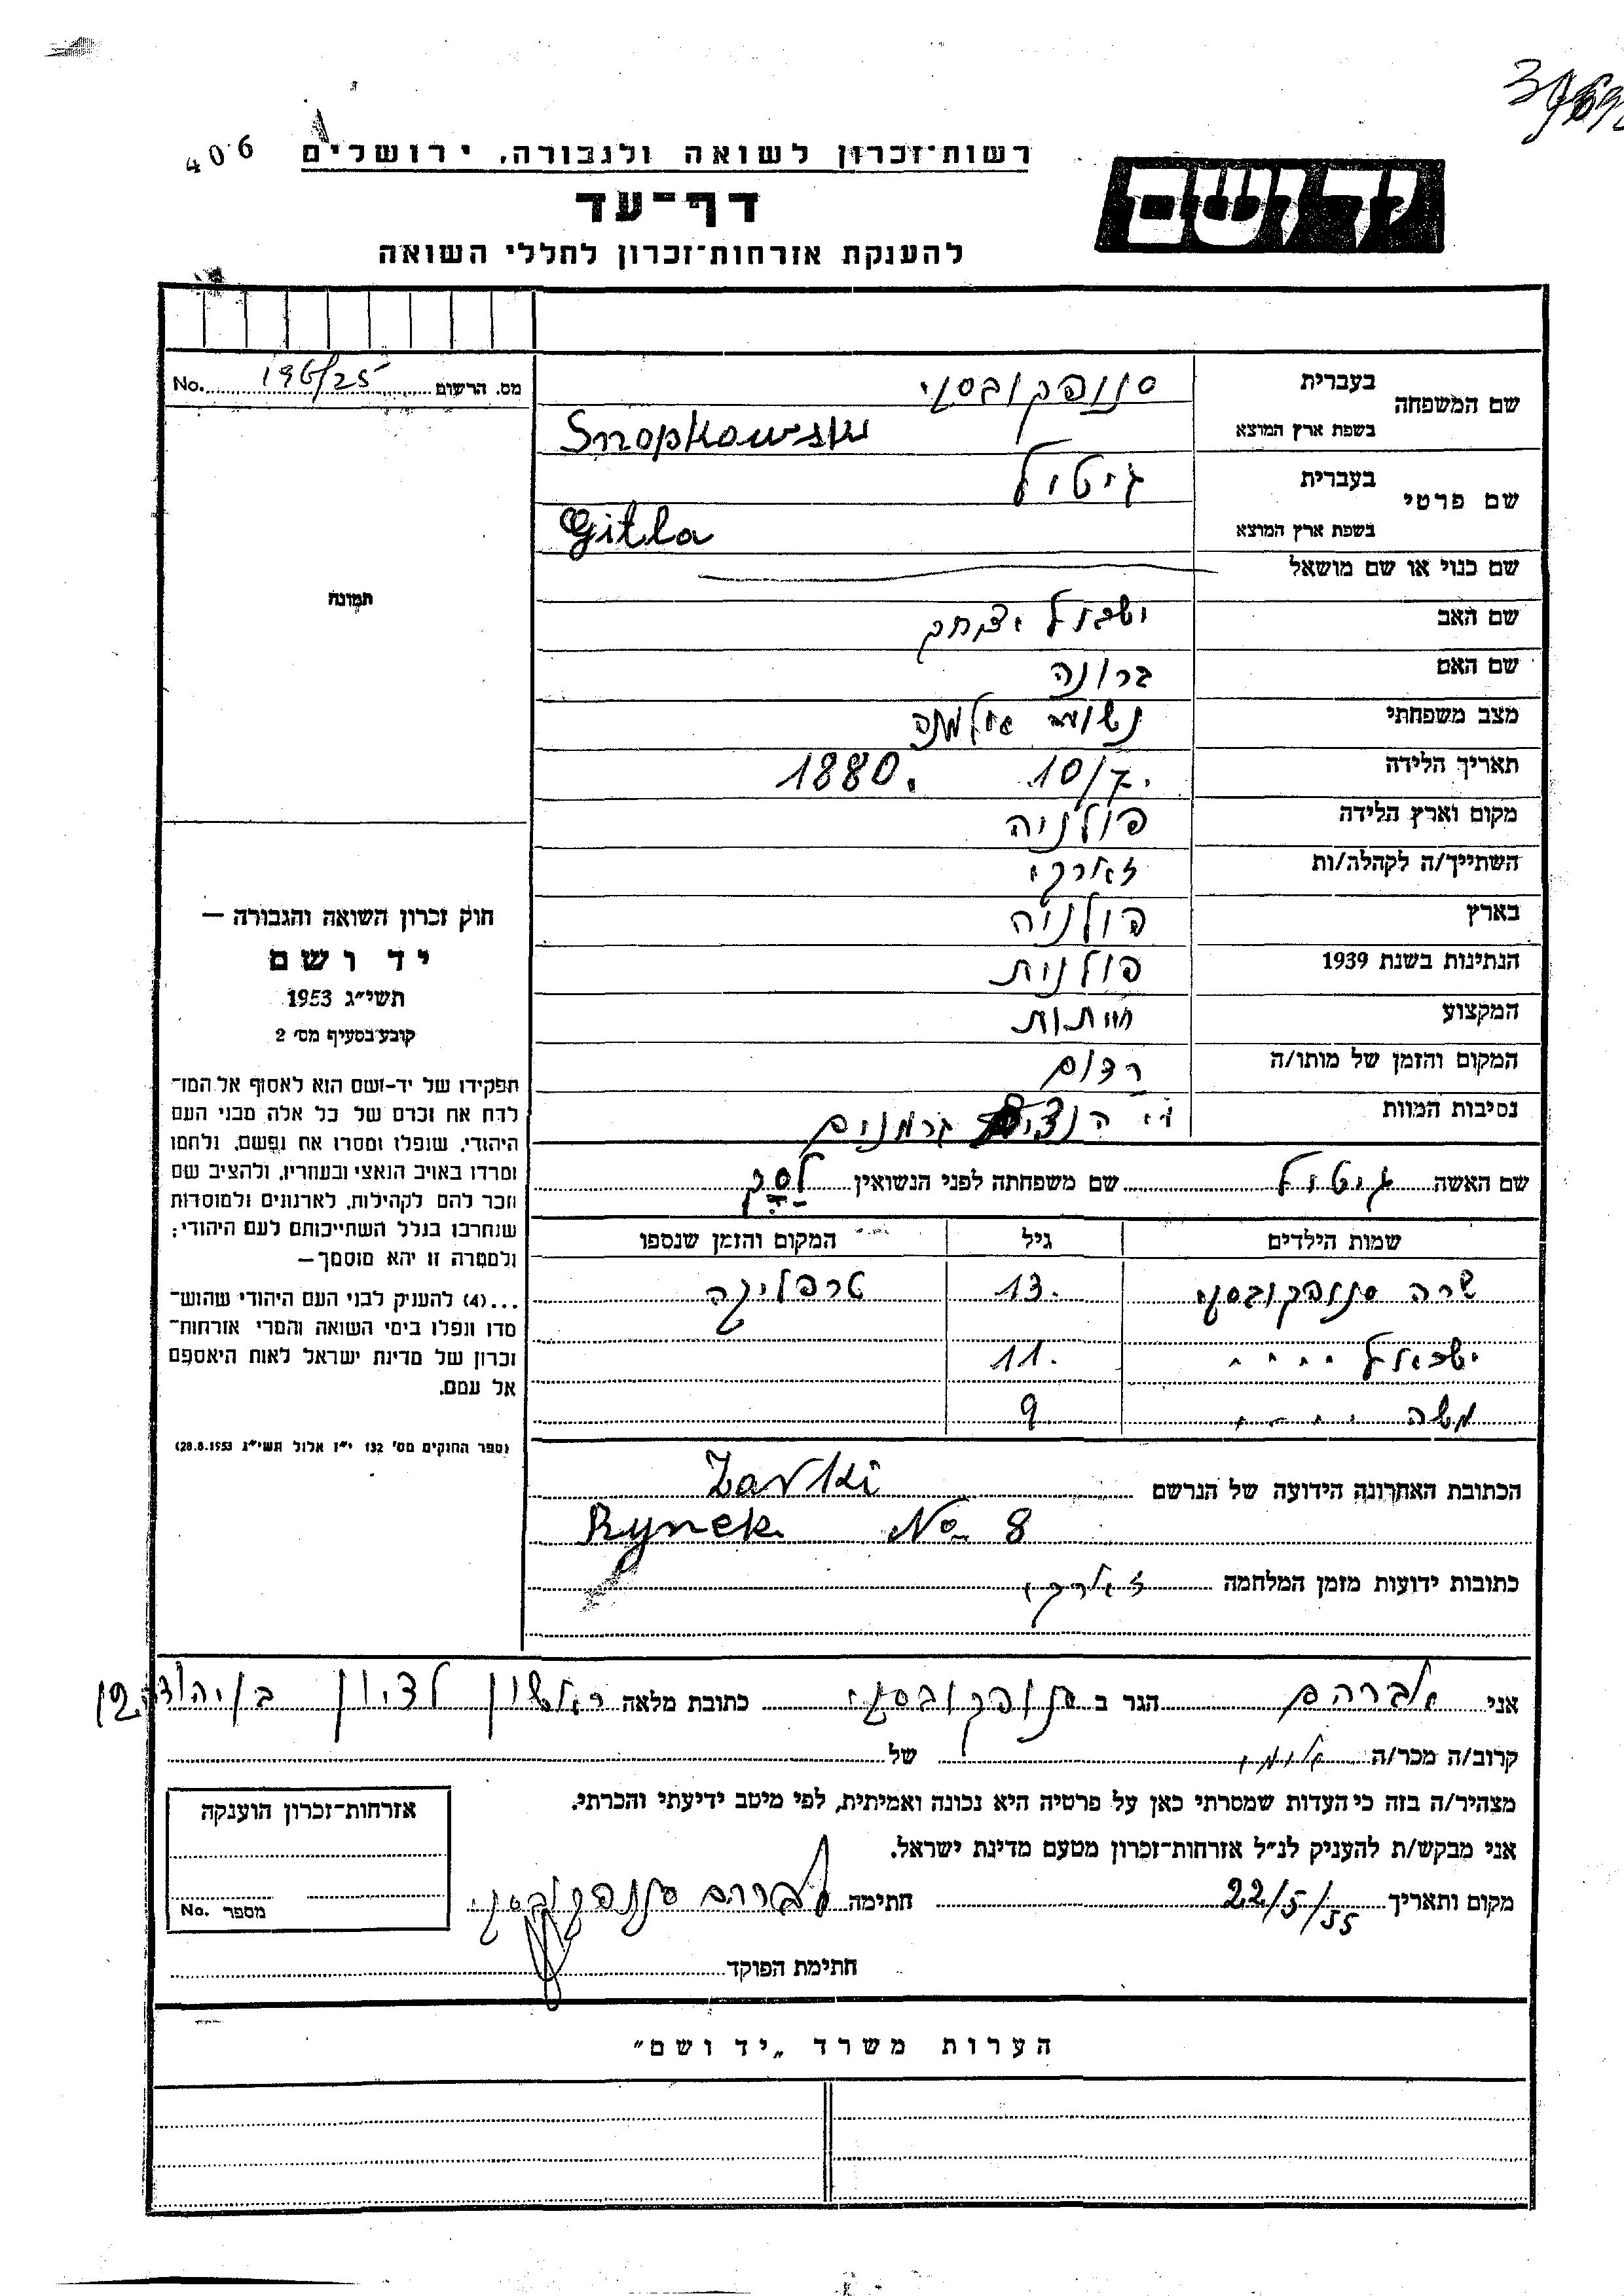 406
רשות־זכרון לשואה ולגבורה, ירושלים
יד ושם
דף־עד
להענקת אזרחות־זכרון לחללי השואה
מס. הרשום 196/25 No.
תמונה
חוק זכרון השואה והגבורה —
יד ושם
תשי״ג 1953
קובע בסעיף מס׳ 2
תפקידו של יד-ושם הוא לאסוף אל המו־
לדת את זכרם של כל אלה מבני העם
היהודי, שנפלו ומסרו את נפשם, נלחמו
ומרדו באויב הנאצי ובעוזריו, ולהציב שם
וזכר להם לקהילות, לארגונים ולמוסדות
שנחרבו בגלל השתייכותם לעם היהודי;
ולמטרה זו יהא מוסמך—
...(4) להעניק לבני העם היהודי שהוש־
מדו ונפלו בימי השואה והמרי אזרחות־
זכרון של מדינת ישראל לאות היאספם
אל עמם.
(ספר החוקים מס׳ 132 י״ז אלול תשי״ג 28.8.1953)
שם המשפחה בעברית סנופקובסקי
בשפת ארץ המוצא Snopkowski
שם פרטי בעברית גיטול
בשפת ארץ המוצא Gitla
שם כנוי או שם מושאל
שם האב ישראל יצחק
שם האם ברונה
מצב משפחתי אלמנה
תאריך הלידה 10/7. 1880.
מקום וארץ הלידה פולניה
השתייך/ה לקהלה/ות זארקי
בארץ פולניה
הנתינות בשנת 1939 פולנית
המקצוע
המקום והזמן של מותו/ה רדום
נסיבות המוות גרמנים
שם האשה גיטול שם משפחתה לפני הנשואין לסק
שמות הילדים גיל המקום והזמן שנספו
שרה סנופקובסקי 13. טרבלינקה
ישראל " " 11.
משה " " 9
הכתובת האחרונה הידועה של הנרשם Zarki
Rynek No 8
כתובות ידועות מזמן המלחמה זארקי
אני אברהם הגר ב סנופקובסקי כתובת מלאה ראשון לציון בן יהודה 12
קרוב/ה מכר/ה של
מצהיר/ה בזה כי העדות שמסרתי כאן על פרטיה היא נכונה ואמיתית, לפי מיטב ידיעתי והכרתי.
אני מבקש/ת להעניק לנ״ל אזרחות־זכרון מטעם מדינת ישראל.
מקום ותאריך 22/5/55 חתימה אברהם סנופקובסקי
חתימת הפוקד
אזרחות־זכרון הוענקה
מספר No.
הערות משרד „יד ושם״